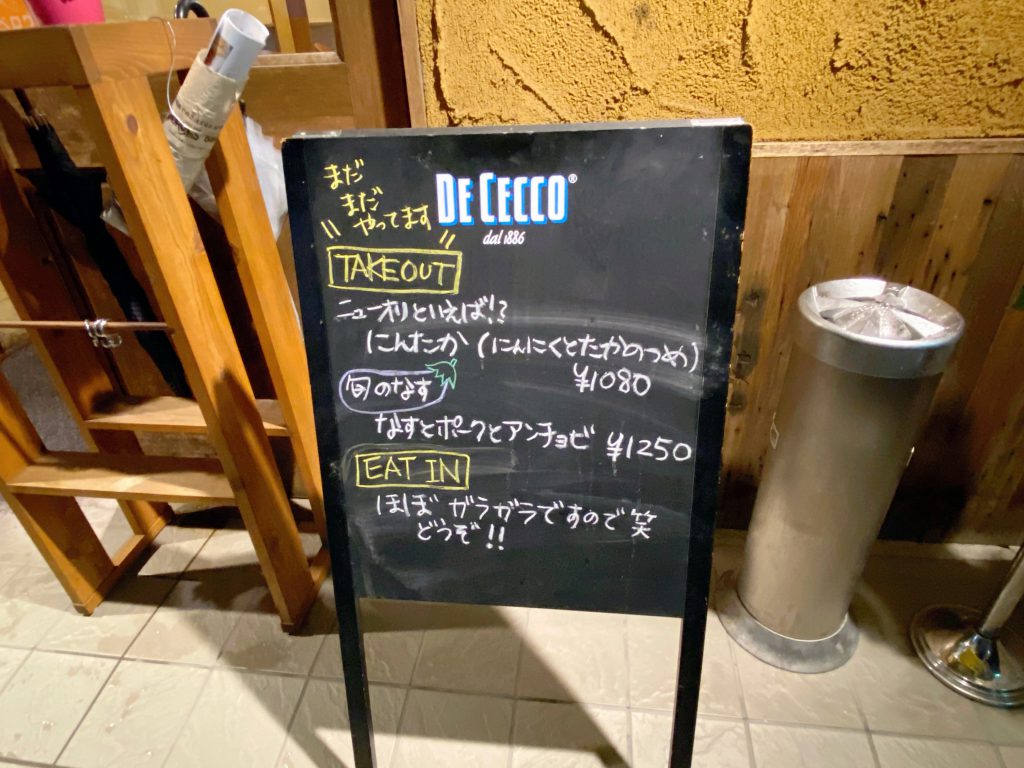 まだ
まだ
やってます
DE CECCO®
dal 1886
TAKEOUT
ニューオリといえば!?
にんたか (にんにくとたかのつめ)
¥1080
旬のなす
なすとポークとアンチョビ ¥1250
EAT IN
ほぼガラガラですので笑
どうぞ!!